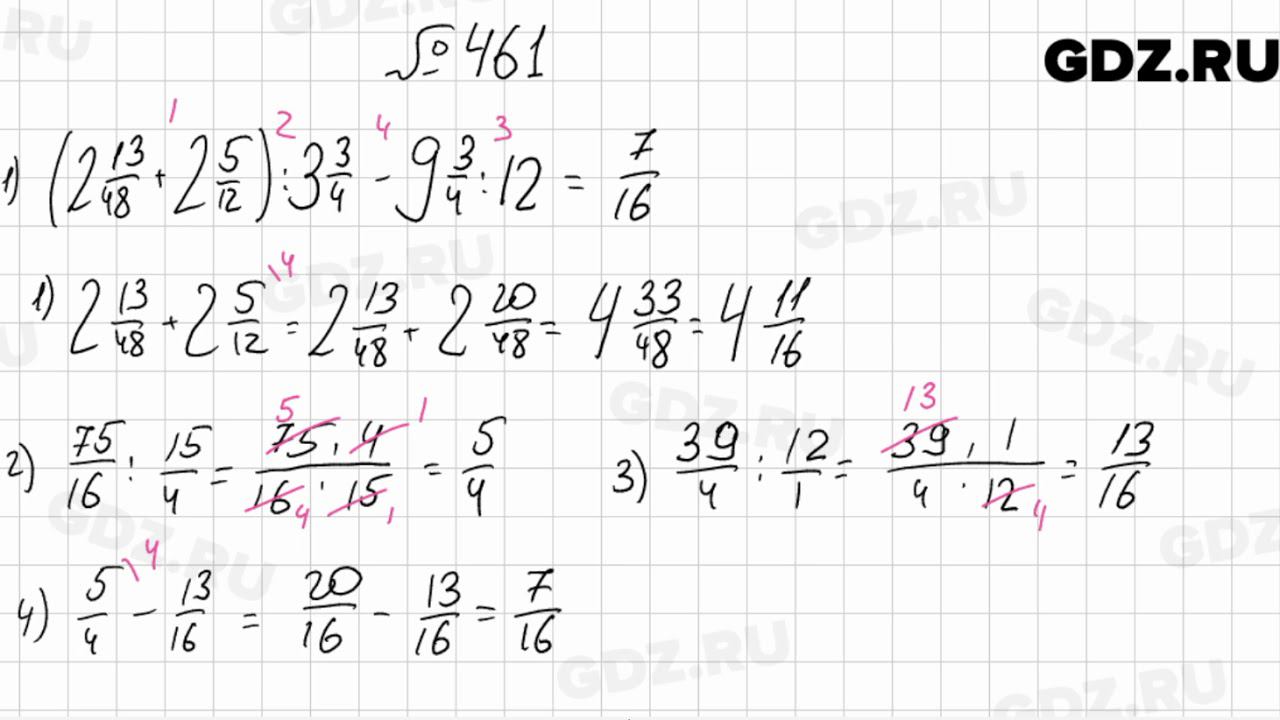 № 461
GDZ.RU
1) (2 13/48 + 2 5/12) : 3 3/4 - 9 3/4 : 12 = 7/16
1 2 4 3
1) 2 13/48 + 2 5/12 \4 = 2 13/48 + 2 20/48 = 4 33/48 = 4 11/16
2) 75/16 : 15/4 = 75 · 4 / 16 · 15 = 5/4
5 1 4 1
3) 39/4 : 12/1 = 39 · 1 / 4 · 12 = 13/16
13 4
4) 5/4 \4 - 13/16 = 20/16 - 13/16 = 7/16
GDZ.RU
GDZ.RU
GDZ.RU
GDZ.RU
GDZ.RU
GDZ.RU
GDZ.RU
GDZ.RU
GDZ.RU